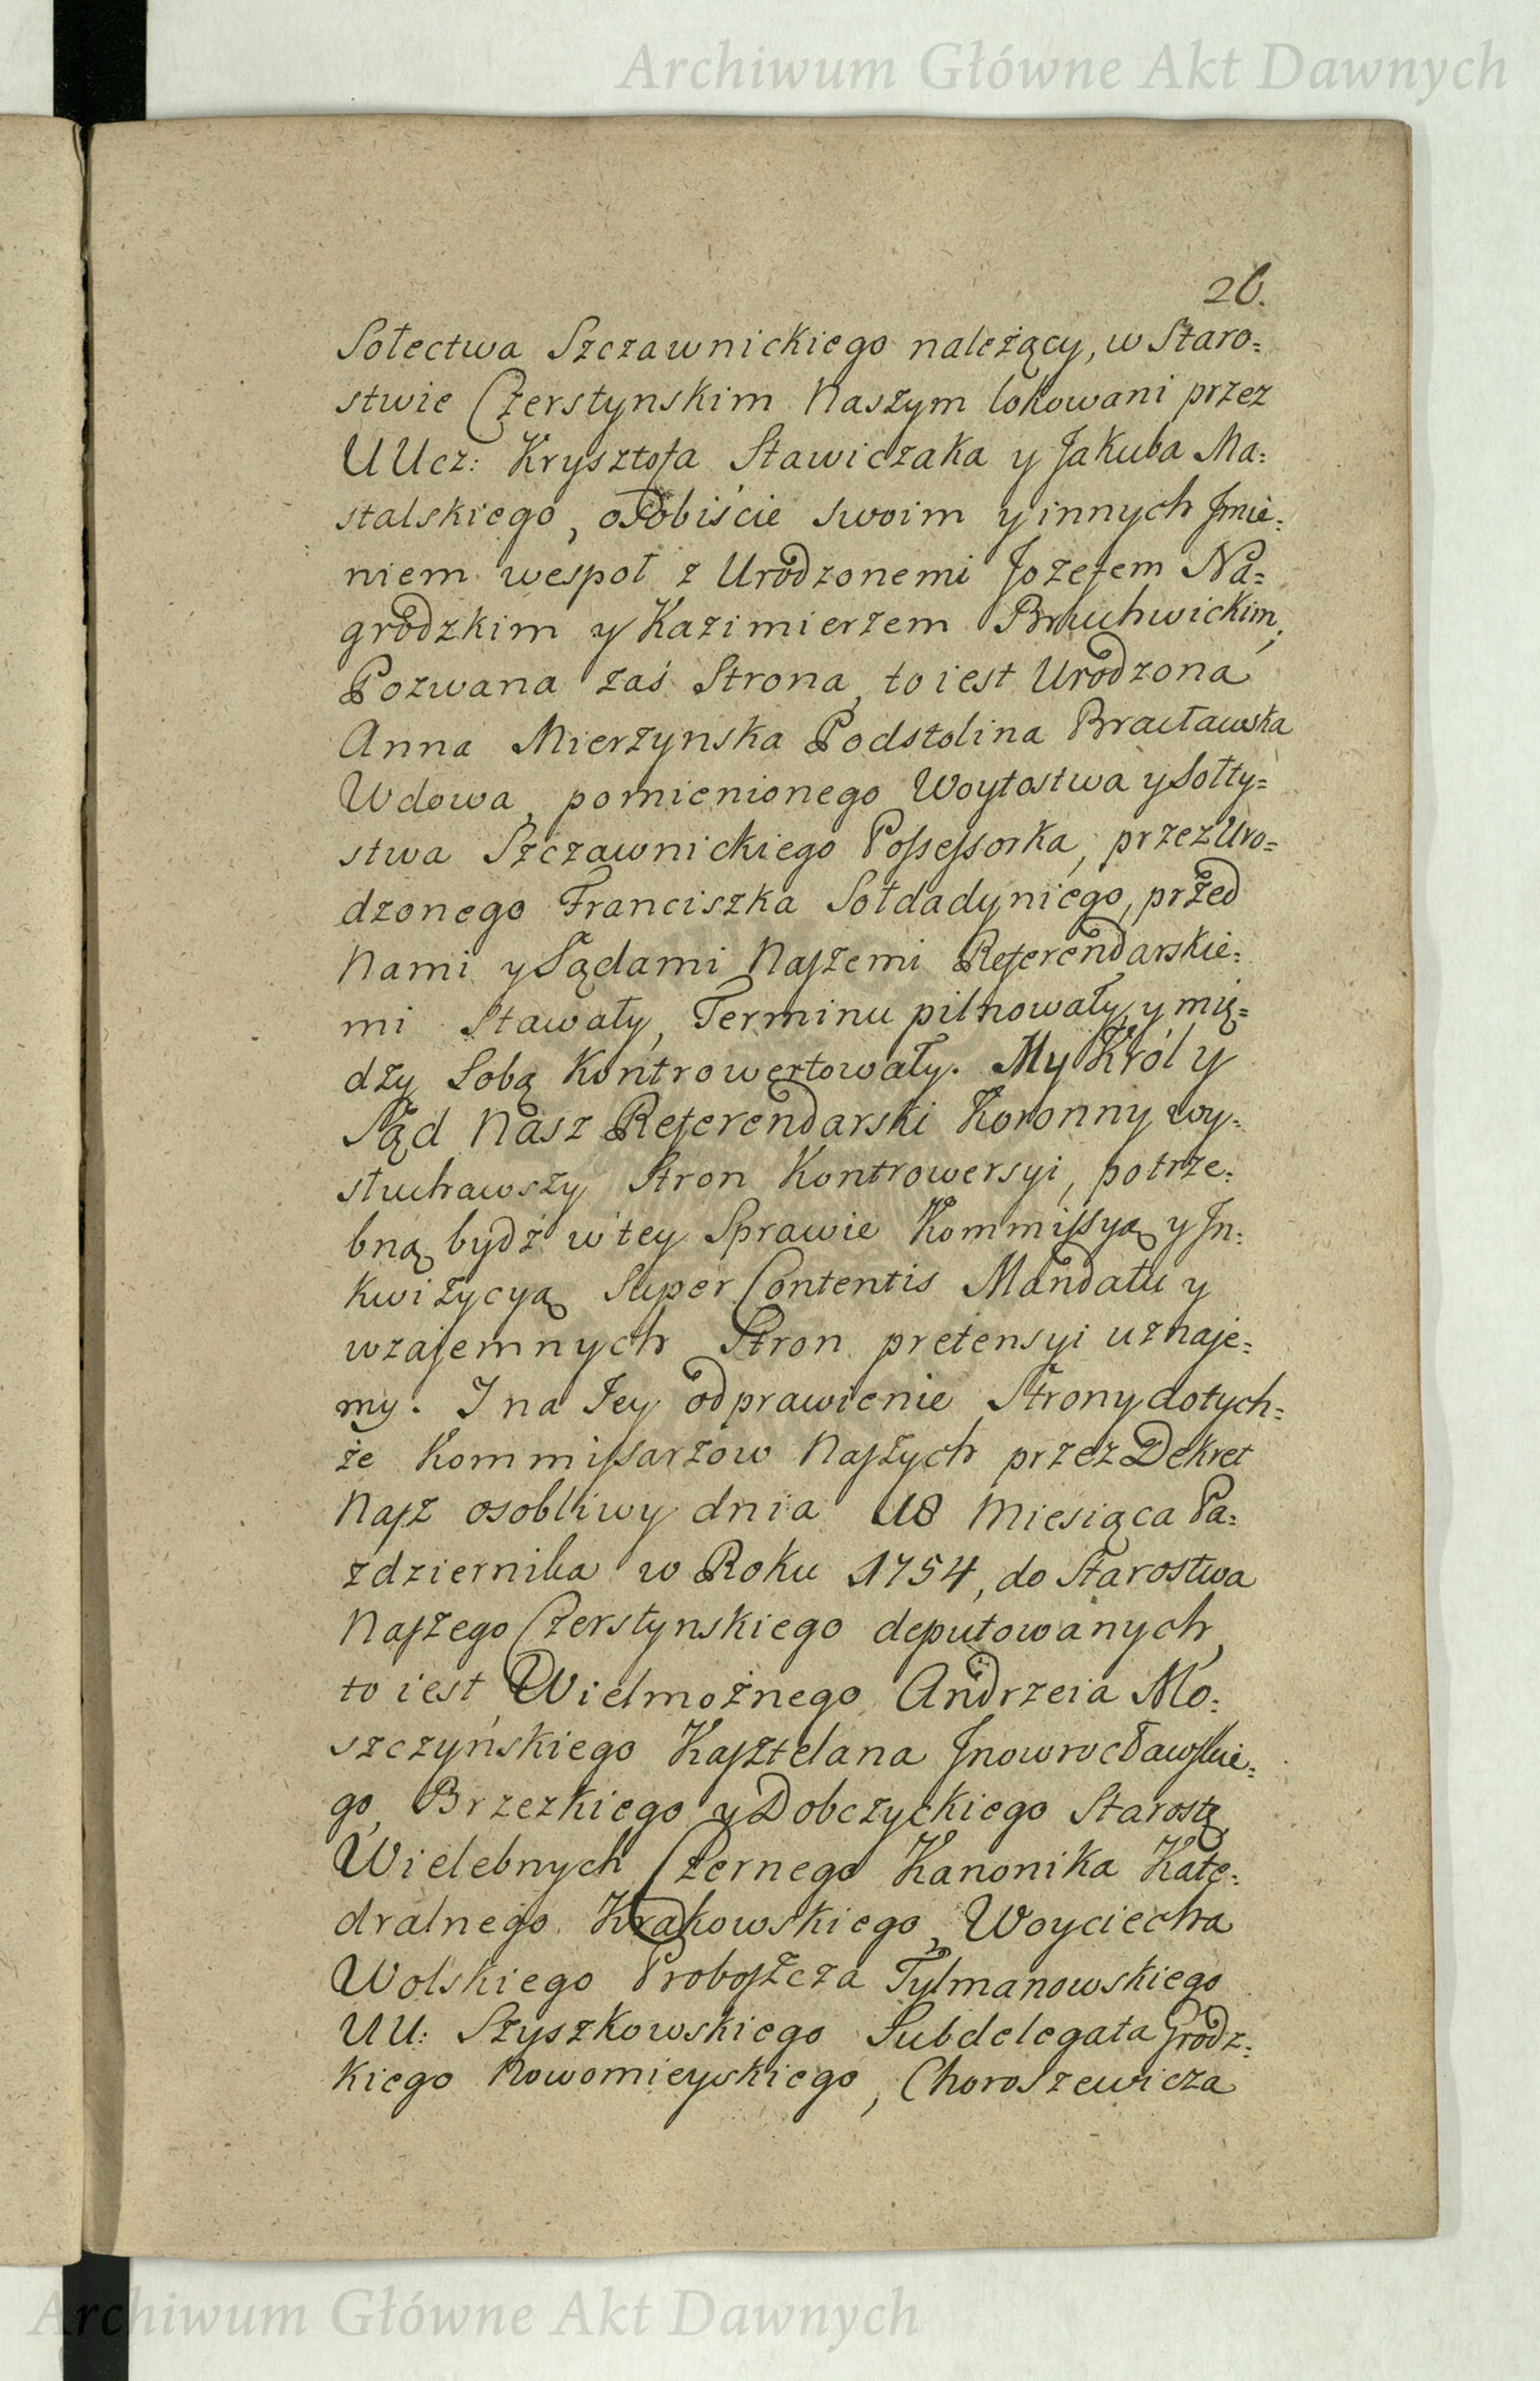 Archiwum Główne Akt Dawnych
26.
Sołectwa Szczawnickiego należący, w Staro=
stwie Czerstynskim Naszym lokowani przez
UUcz: Krysztofa Stawiczaka y Jakuba Ma=
stalskiego, osobiście swoim y innych Jmie=
niem wespoł z Urodzonemi Jozefem Na=
grodzkim y Kazimierzem Bruchwickim,
Pozwana zaś Strona, to iest Urodzona
Anna Mierzynska Podstolina Bracławska
Wdowa, pomienionego Woytostwa y Sołty=
stwa Szczawnickiego Possessorka, przez Uro=
dzonego Franciszka Sołdadyniego, przed
Nami y Sądami Naszemi Referendarskie=
mi Stawały, Terminu pilnowały, y mię=
dzy Sobą Kontrowertowały. My Król y
Sąd Nasz Referendarski Koronny wy=
słuchawszy Stron Kontrowersyi, potrze=
bną bydź w tey Sprawie Kommissyą y In=
kwizycyą Super Contentis Mandatu y
wzajemnych Stron pretensyi uznaje=
my. I na Jey odprawienie Strony dotych=
że Kommissarzow Naszych przez Dekret
Nasz osobliwy dnia 18 Miesiąca Pa=
zdziernika w Roku 1754, do Starostwa
Naszego Czerstynskiego deputowanych,
to iest, Wielmożnego Andrzeia Mo=
szczyńskiego Kasztelana Jnowrocławskie=
go, Brzezkiego y Dobczyckiego Starostę,
Wielebnych Czernego Kanonika Kate=
dralnego Krakowskiego, Woyciecha
Wolskiego Proboszcza Tylmanowskiego
UU: Szyszkowskiego Subdelegata Grodz=
kiego Nowomieyskiego, Choroszewicza
Archiwum Główne Akt Dawnych